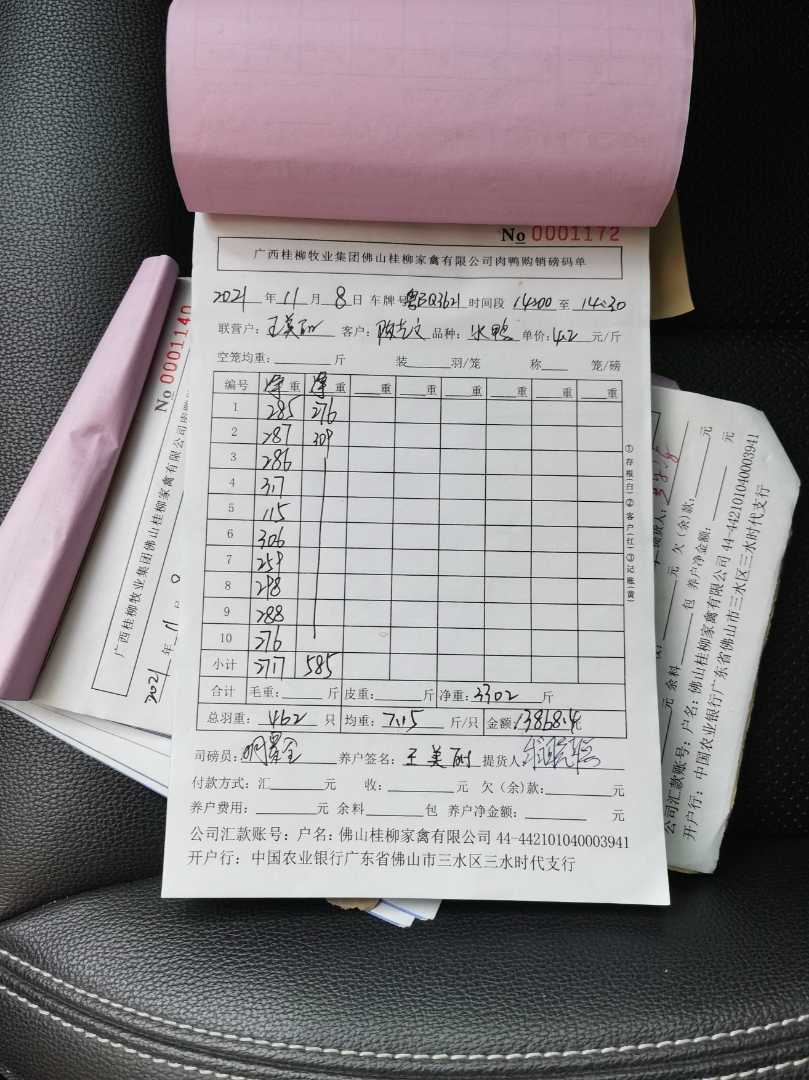 No 0001172
广西桂柳牧业集团佛山桂柳家禽有限公司肉鸭购销磅码单
2021 年 11 月 8 日 车牌号 粤EQ3621 时间段 14:00 至 14:30
联营户: 王美 客户: 品种: 水鸭 单价: 4.2 元/斤
空笼均重: 斤 装 羽/笼 称 笼/磅
编号 净重 净重 重 重 重 重 重 重
1 285 276
2 287 309
3 286
4 317
5 115
6 306
7 259
8 298
9 288
10 276
小计 2717 585
合计 毛重: 斤 皮重: 斤 净重: 3302 斤
总羽重: 462 只 均重: 7.15 斤/只 金额: 13868.4元
司磅员: 养户签名: 王美 提货人:
付款方式: 汇 元 收: 元 欠(余)款: 元
养户费用: 元 余料 包 养户净金额: 元
公司汇款账号: 户名: 佛山桂柳家禽有限公司 44-442101040003941
开户行: 中国农业银行广东省佛山市三水区三水时代支行
①存根(白)②客户(红)③记账(黄)
No 0001140
广西桂柳牧业集团佛山桂柳家禽有限公司
2021 年 11
提货人:
元 欠(余)款: 元
元 余料 包 养户净金额: 元
公司汇款账号: 户名: 佛山桂柳家禽有限公司 44-442101040003941
开户行: 中国农业银行广东省佛山市三水区三水时代支行